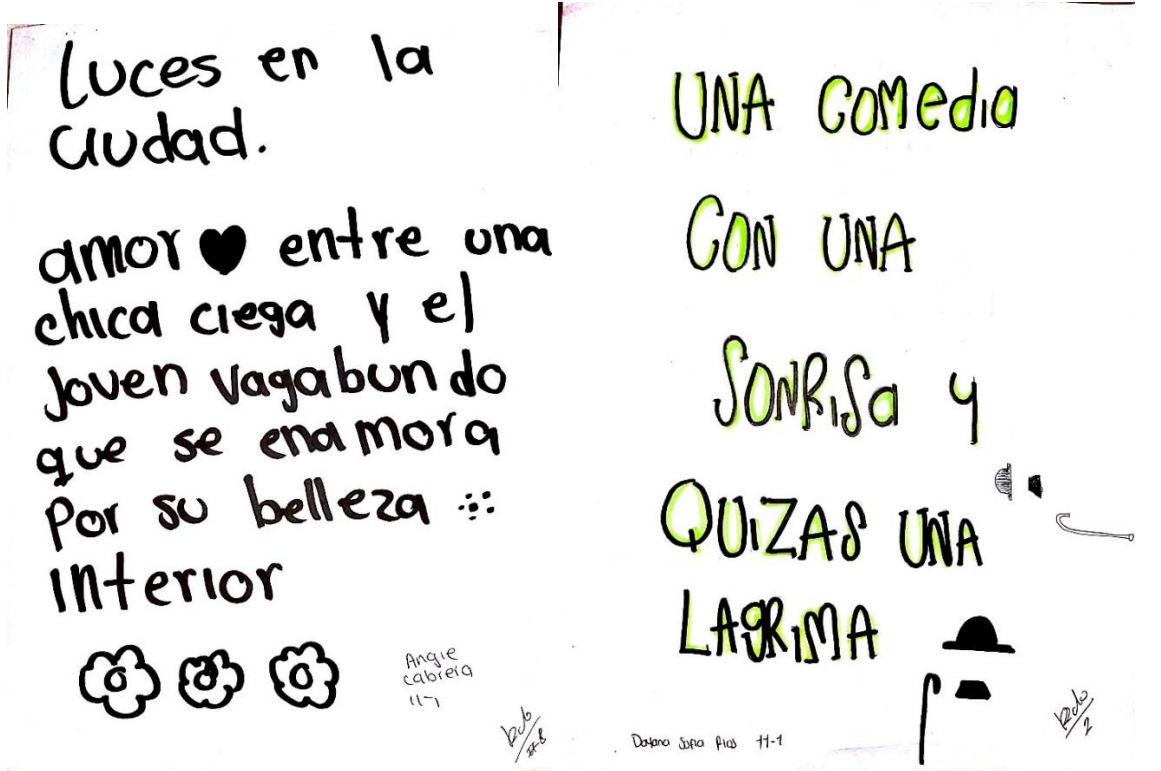 luces en la
ciudad.
amor entre una
chica ciega y el
joven vagabundo
que se enamora
Por su belleza
interior
Angie
cabrera
11-1
UNA COMedia
CON UNA
SONRiSa y
QUiZAS UNA
LAgRiMA
Dayana Sofia Rios 11-1